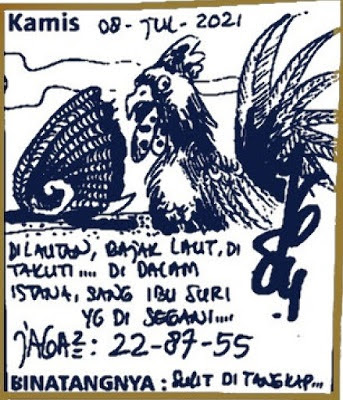 Kamis 08-JUL-2021
DI LAUTAN, BAJAK LAUT, DI
TAKUTI.... DI DALAM
ISTANA, SANG IBU SURI
YG DI SEGANI....
JAGA2 : 22-87-55
BINATANGNYA : SULIT DI TANGKAP...